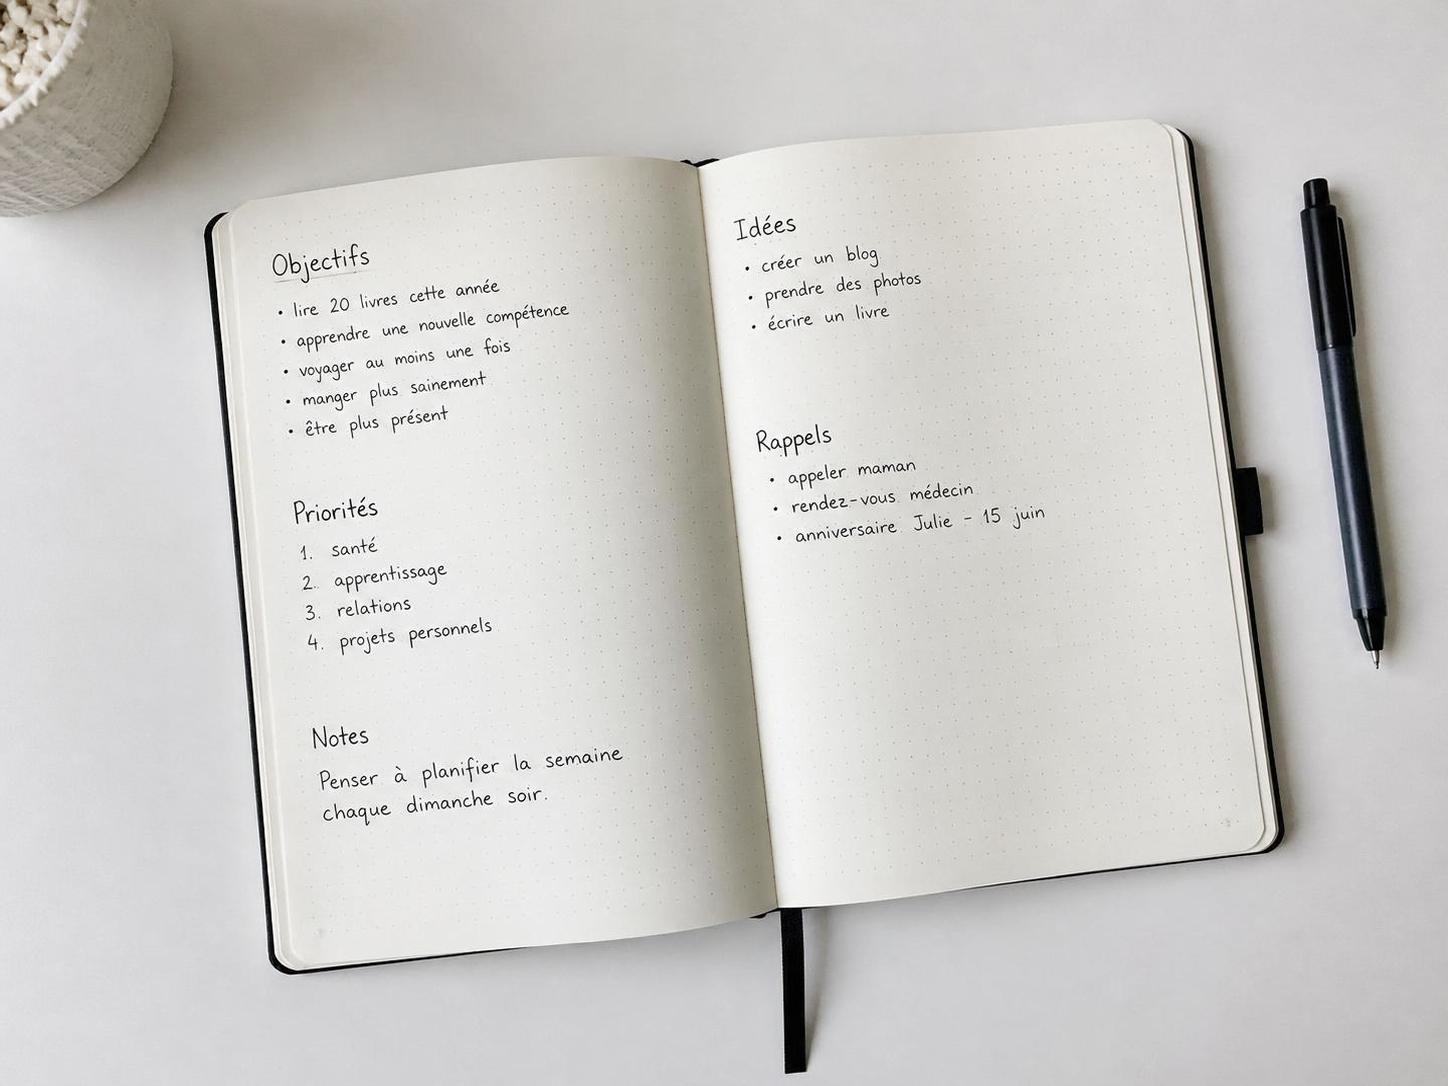 Objectifs
• lire 20 livres cette année
• apprendre une nouvelle compétence
• voyager au moins une fois
• manger plus sainement
• être plus présent
Priorités
1. santé
2. apprentissage
3. relations
4. projets personnels
Notes
Penser à planifier la semaine
chaque dimanche soir.
Idées
• créer un blog
• prendre des photos
• écrire un livre
Rappels
• appeler maman
• rendez-vous médecin
• anniversaire Julie - 15 juin